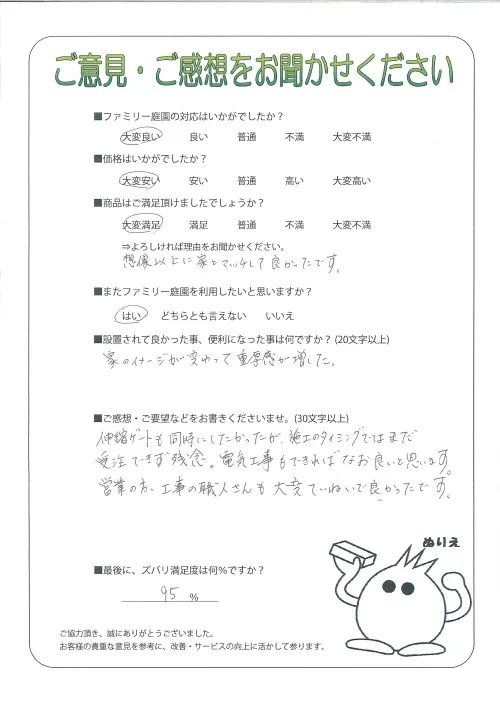 ご意見・ご感想をお聞かせください
■ファミリー庭園の対応はいかがでしたか？
大変良い 良い 普通 不満 大変不満
■価格はいかがでしたか？
大変安い 安い 普通 高い 大変高い
■商品はご満足頂けましたでしょうか？
大変満足 満足 普通 不満 大変不満
⇒よろしければ理由をお聞かせください。
想像以上に家とマッチして良かったです。
■またファミリー庭園を利用したいと思いますか？
はい どちらとも言えない いいえ
■設置されて良かった事、便利になった事は何ですか？(20文字以上)
家のイメージが変わって重厚感が増した。
■ご感想・ご要望などをお書きくださいませ。(30文字以上)
伸縮ゲートも同時にしたかったが、施工のタイミングではまだ
受注できず残念。電気工事もできればなお良いと思います。
営業の方、工事の職人さんも大変ていねいで良かったです。
ぬりえ
■最後に、ズバリ満足度は何％ですか？
95 ％
ご協力頂き、誠にありがとうございました。
お客様の貴重な意見を参考に、改善・サービスの向上に活かして参ります。